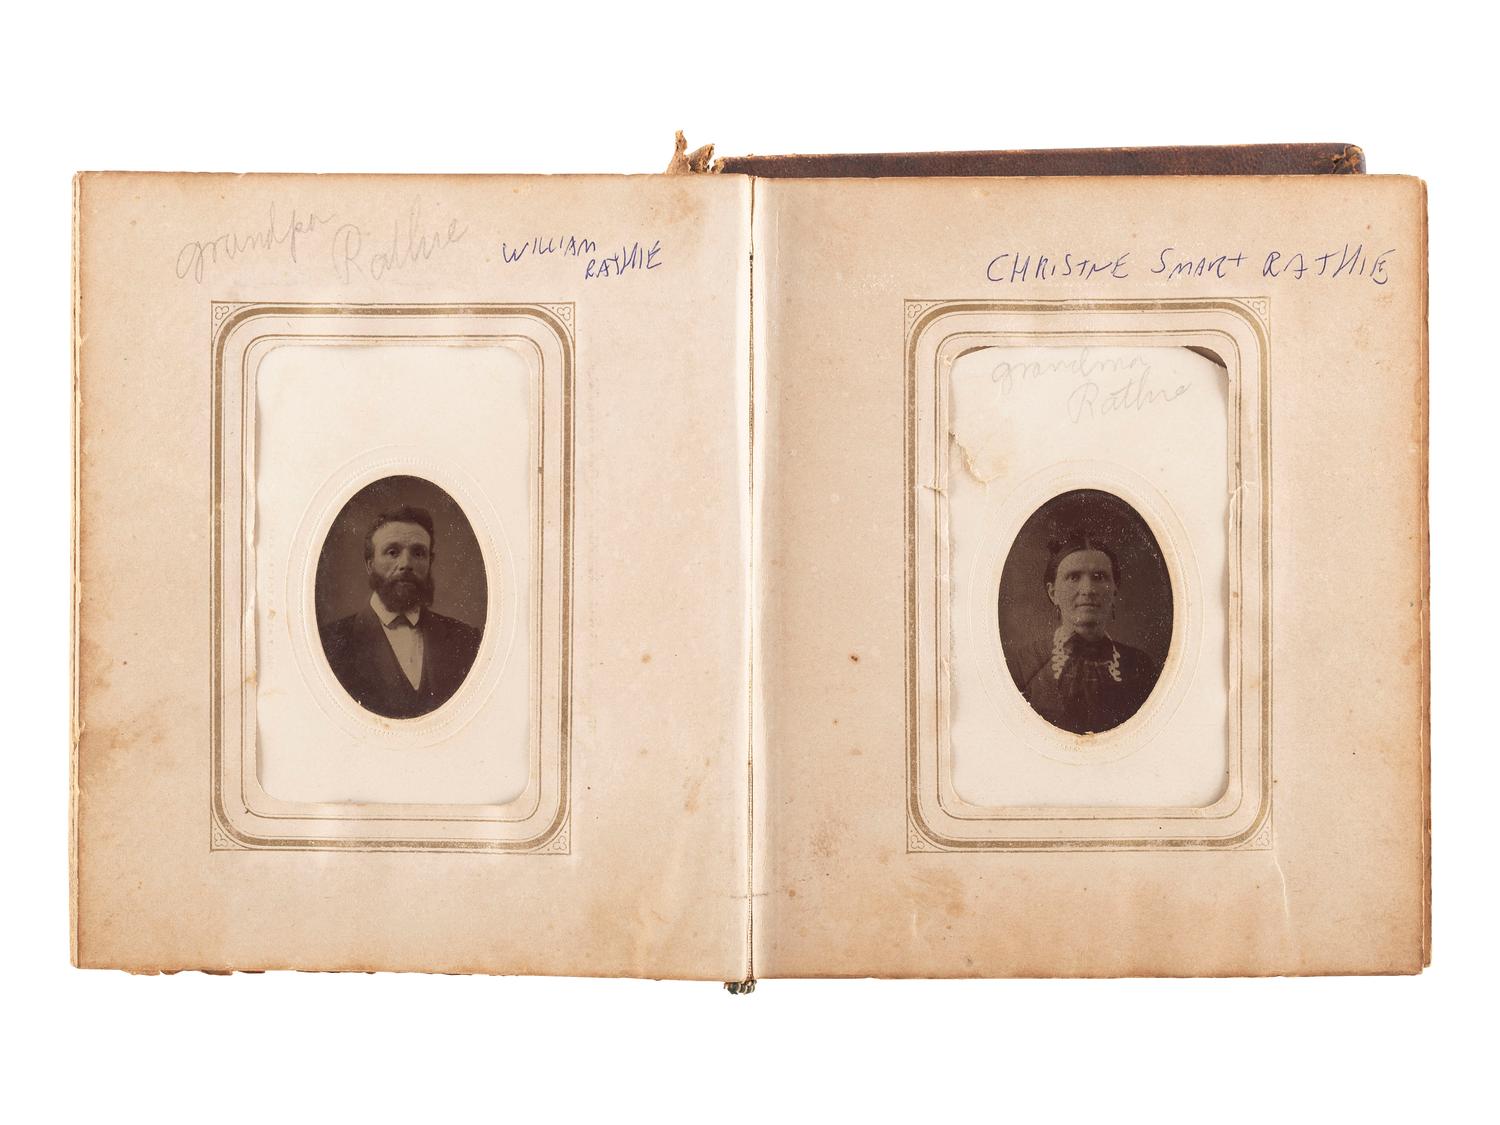 grandpa
Rathie
WILLIAM
RATHIE
CHRISTNE SMART RATHIE
grandma
Rathie